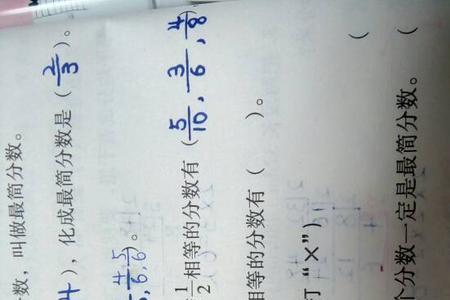 数，叫做最简分数。
4），化成最简分数是（2/3）。
4/6，5/6）。
1/2相等的分数有（5/10，3/6，4/8
相等的分数有（ ）。
打“×”）
（
个分数一定是最简分数。（